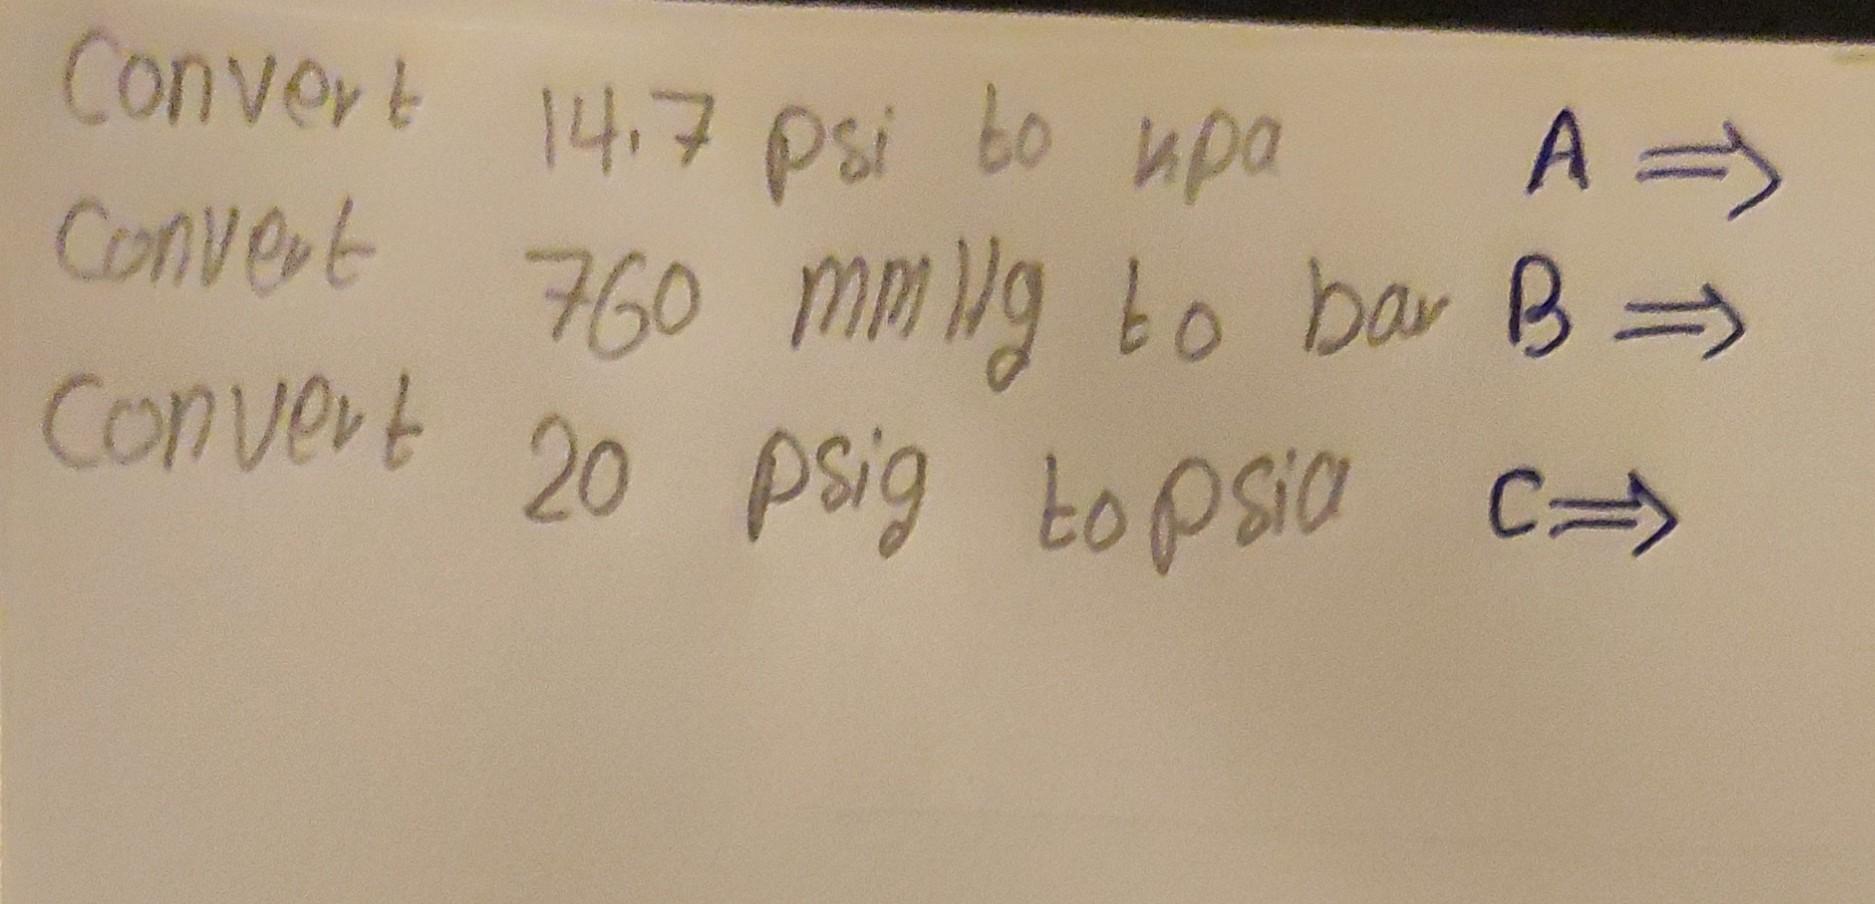 Convert 14.7 psi to kpa A ⇒
Convert 760 mmHg to bar B ⇒
Convert 20 psig to psia C ⇒